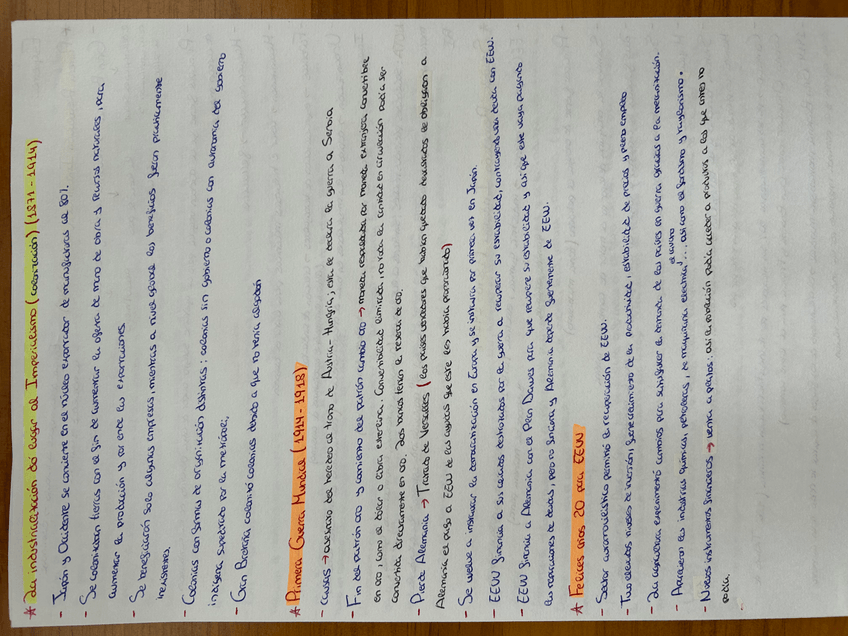 * La industrialización da lugar al Imperialismo (colonización) (1871-1914)
- Japón y Occidente se convierte en el núcleo exportador de manufacturas al 80%.
- Se colonizaban tierras con el fin de aumentar la oferta de mano de obra y recursos naturales, para
aumentar la producción y por ende las exportaciones
- Se beneficiaron solo algunas empresas, mientras a nivel global los beneficios fueron prácticamente
inexistentes.
- Colonias con formas de organización distintas: colonias sin gobierno o colonias con autonomía del gobierno
indígena supeditado por la metrópoli,
- Gran Bretaña colonizó colonias debido a que no tenía
* Primera Guerra Mundial (1914-1918)
- causas → asesinato del heredero al trono de Austria-Hungría; esta le declara la guerra a Serbia
- Fin del patrón oro y comienzo del patrón cambio oro → moneda respaldada por moneda extranjera convertible
en oro, como el dólar o libra esterlina. Convertibilidad limitada, no toda la cantidad en circulación podía ser
convertida directamente en oro. Los bancos tenían la reserva de oro.
- Pierde Alemania → Tratado de Versalles (los países vencedores que habían quedado devastados le obligaron a
Alemania el pago a EEUU de las ayudas que este les había proporcionado)
- Se vuelve a instaurar la democratización en Europa y se instaura por primera vez en Japón.
- EEUU financia a los países destrozados por la guerra a recuperar su estabilidad, contrayendo una deuda con EEUU.
- EEUU financia a Alemania con el Plan Dawes para que recupere su estabilidad y así que este vaya pagando
las reparaciones de deudas, pero no funciona y Alemania depende fuertemente de EEUU.
* Felices años 20 para EEUU
- Sector automovilístico permitió la recuperación de EEUU.
- Tuvo elevados niveles de inversión, fuerte crecimiento de la productividad, estabilidad de precios y pleno empleo
- La agricultura experimentó cambios para satisfacer la demanda de los países en guerra gracias a la mecanización.
- Aparecieron las industrias químicas, petroleras, de maquinaria eléctrica,... así como el fordismo y taylorismo.
- Nuevos instrumentos financieros → venta a plazos: así la población podía acceder a productos a los que antes no
podía.